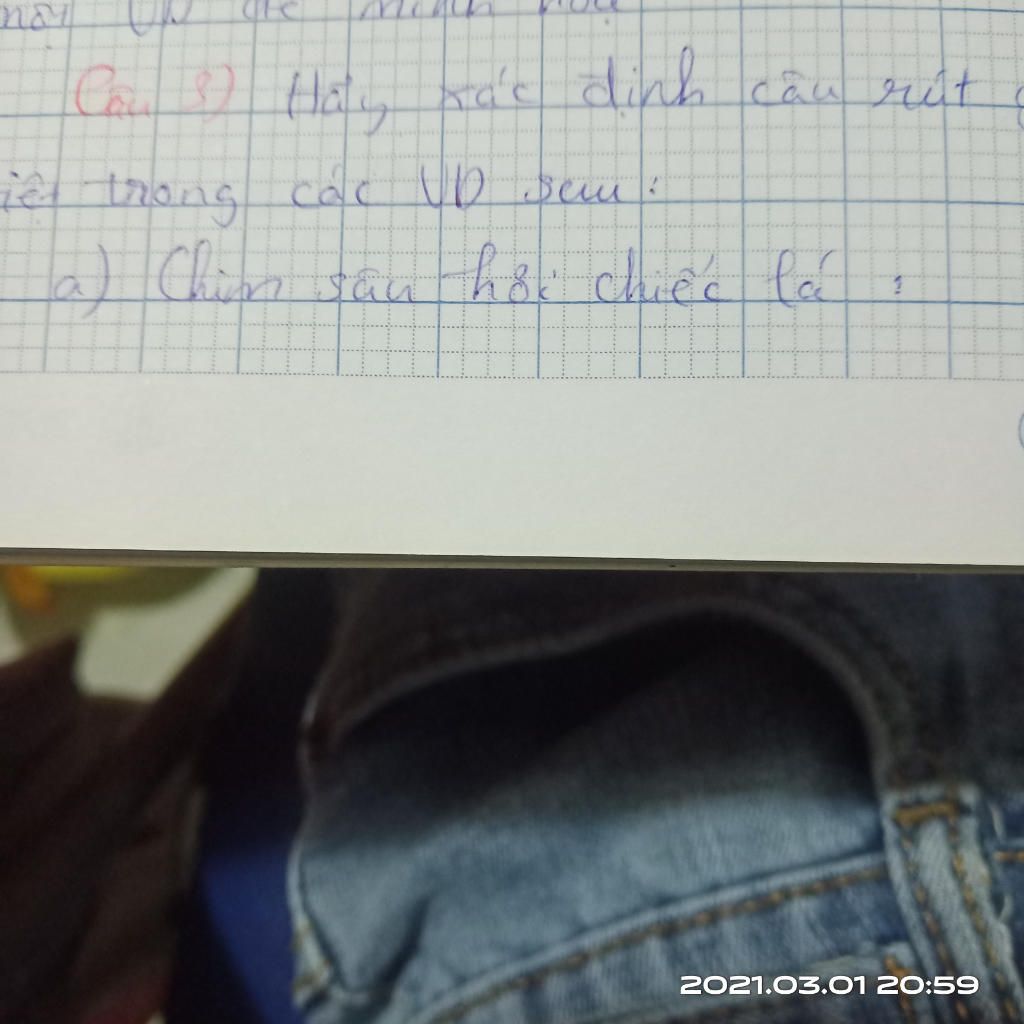 Câu 3) Hãy xác định câu rút
trong các VD sau:
a) Chim sâu hỏi chiếc lá:
2021.03.01 20:59